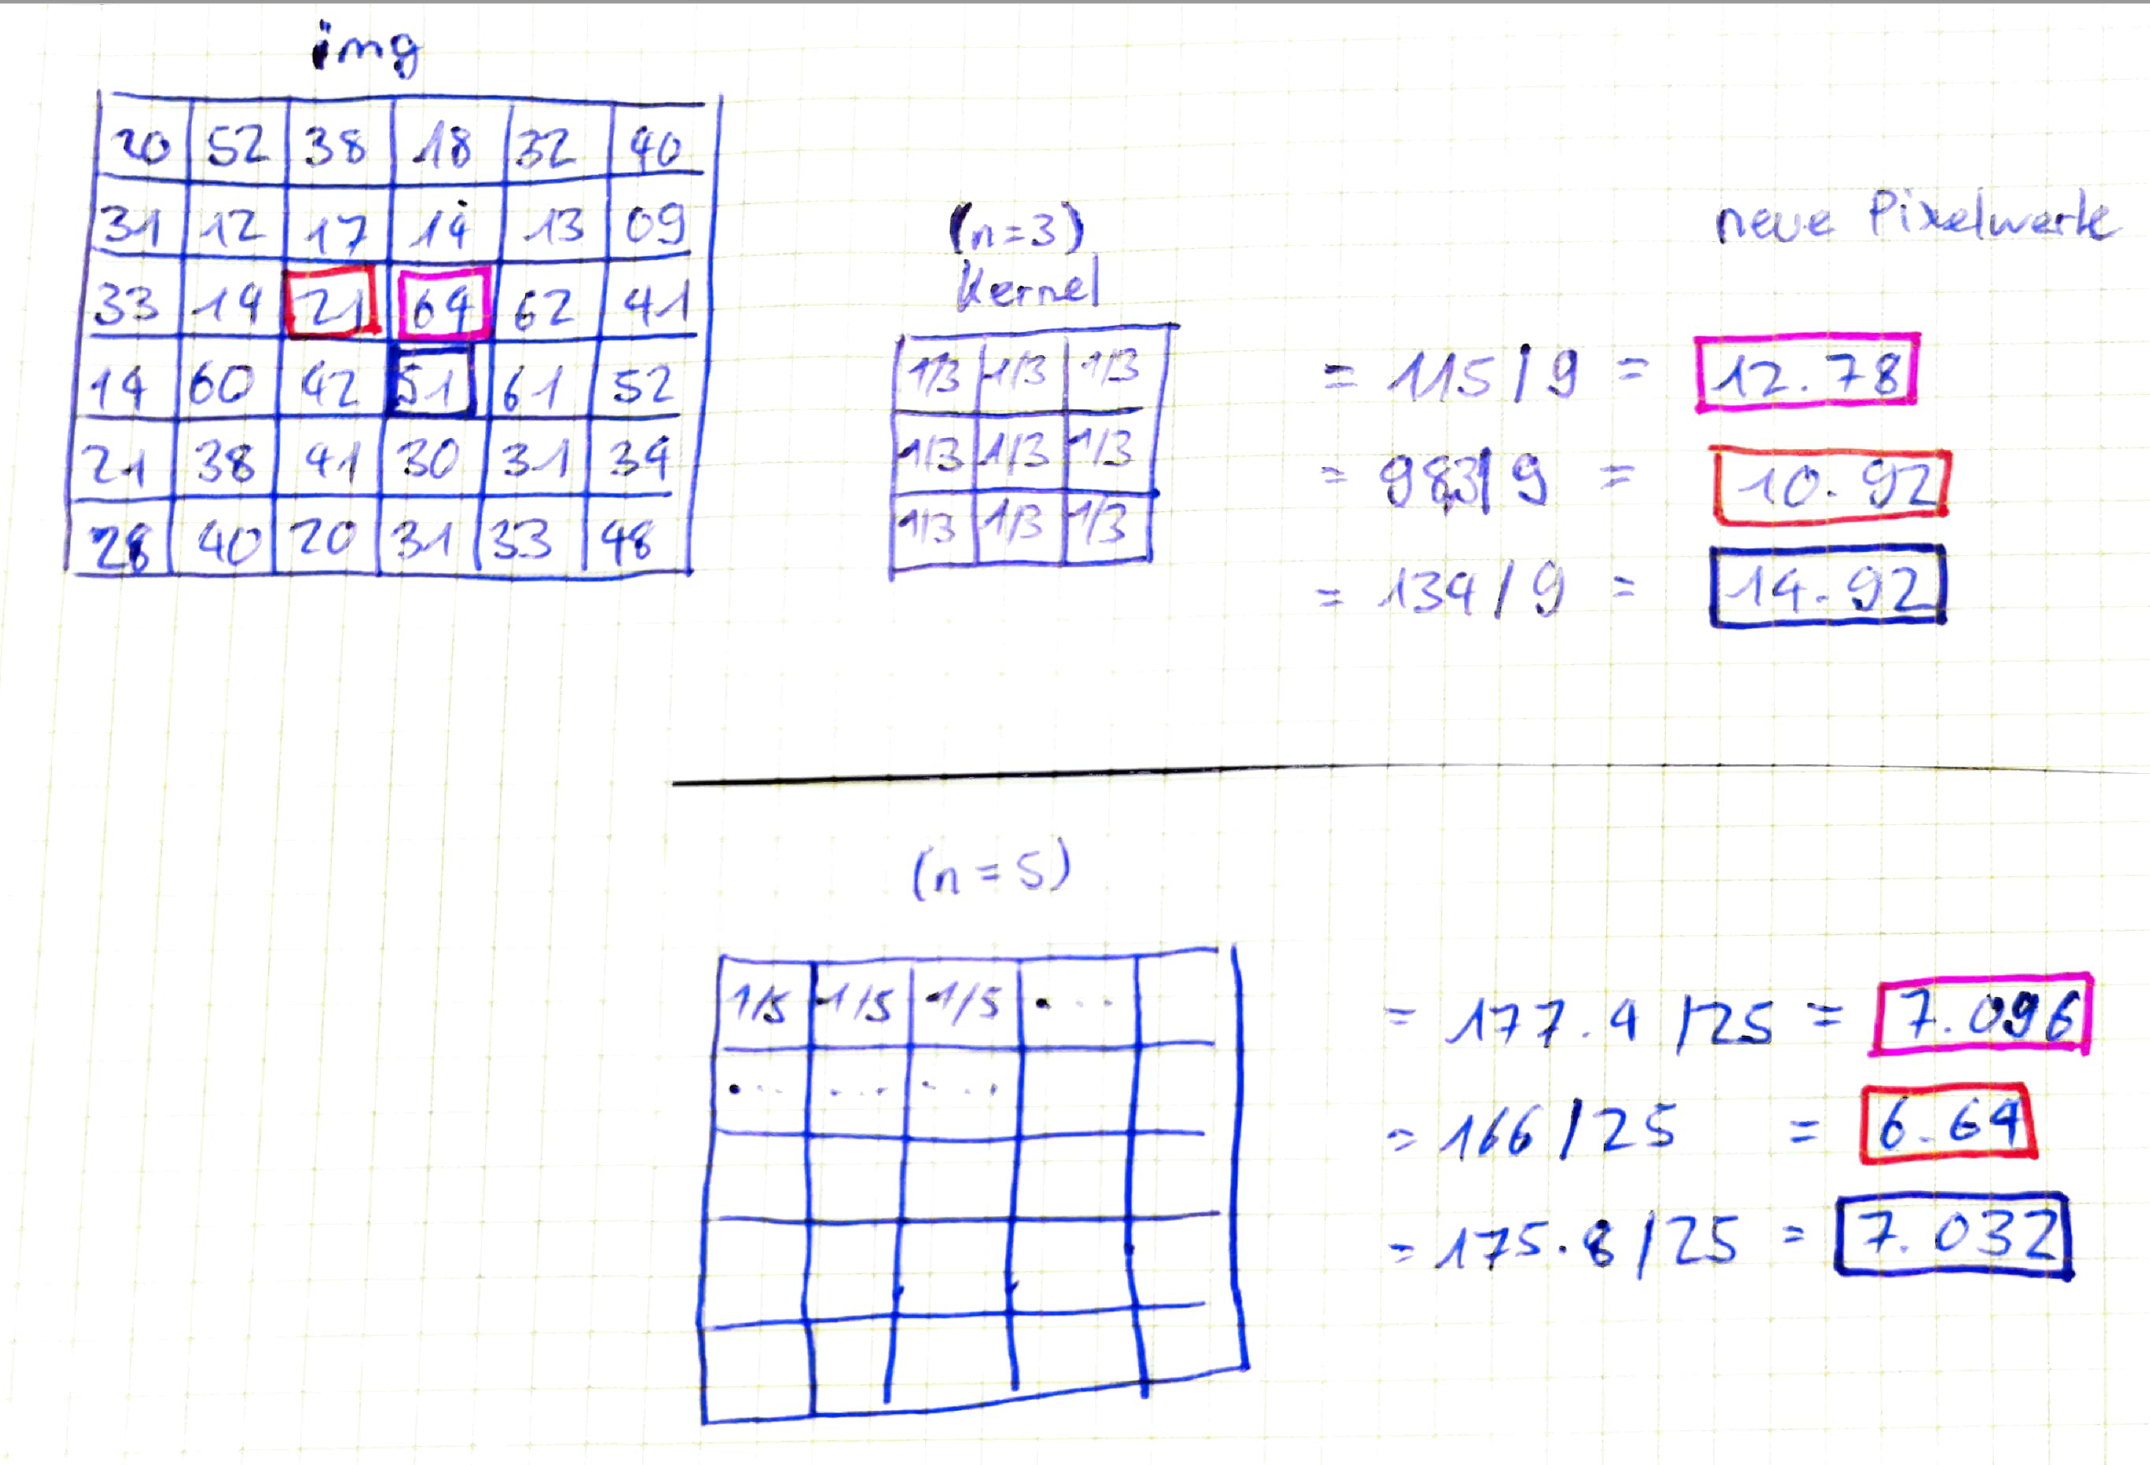 img
20 52 38 18 32 40
31 12 17 14 13 09
33 14 21 64 62 41
14 60 42 51 61 52
21 38 41 30 31 34
28 40 20 31 33 48
(n=3)
Kernel
1/3 1/3 1/3
1/3 1/3 1/3
1/3 1/3 1/3
neue Pixelwerte
= 115/9 = 12.78
= 98.3/9 = 10.92
= 134/9 = 14.92
(n=5)
1/5 1/5 1/5 ...
... ... ...
= 177.4/25 = 7.096
= 166/25 = 6.64
= 175.8/25 = 7.032